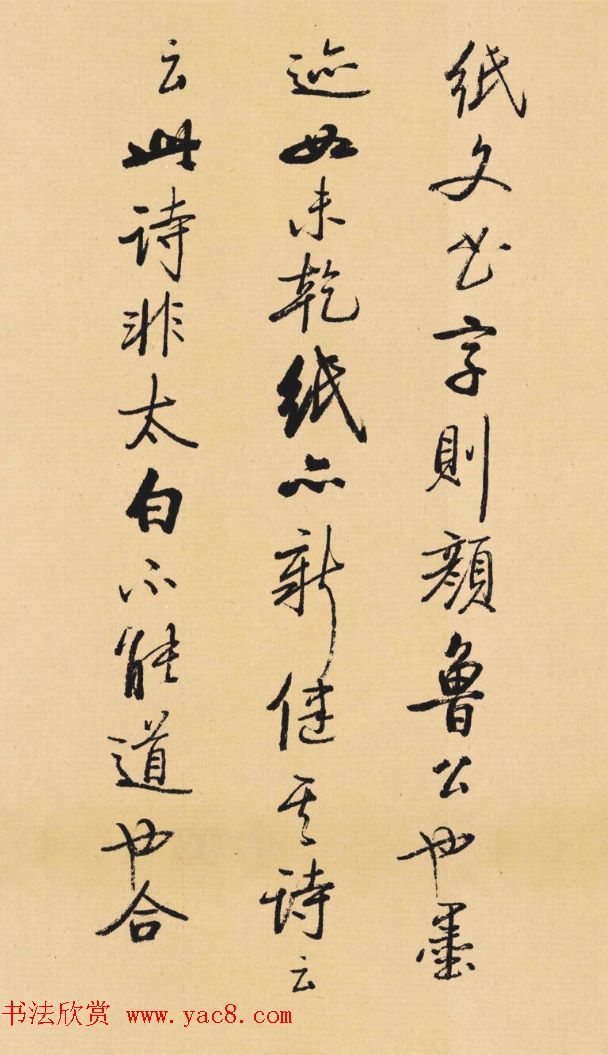 纸文书字則顏魯公也墨
迹如未乾纸亦新健其诗云
云此诗非太白不能道也合
书法欣赏 www.yac8.com